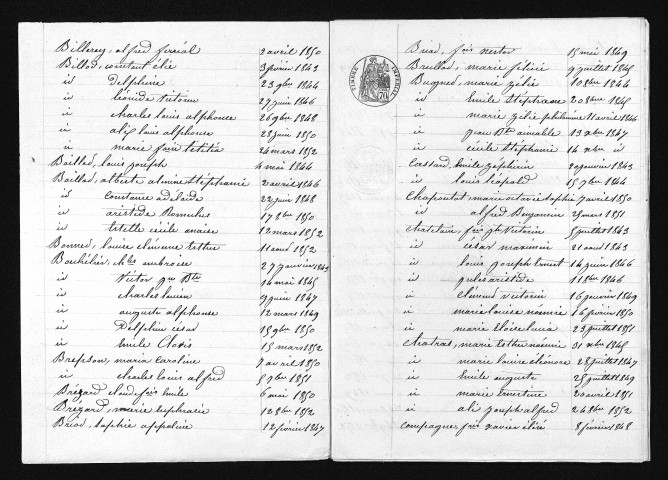 Billerey, alfred ferréal 2 avril 1850
Billod, constant élie 3 février 1843
id Delphine 23 9bre 1844
id léonide victorin 27 juin 1846
id charles louis alphonse 26 9bre 1848
id alix louis alphonse 28 juin 1850
id marie foise letitia 24 mars 1852
Boillod, louis joseph 4 mai 1844
Boillod, alberte almine Stéphanie 2 avril 1846
id constance adelaïde 22 juin 1848
id aristide Romulus 17 8bre 1850
id estelle cécile anaïse 12 mars 1852
Bonned, louise clémence esther 11 aout 1852
Bouhélier, ch les ambroise 27 janvier 1843
id Victor jn Bte 14 mai 1845
id charles lucien 9 juin 1847
id auguste alphonse 12 mars 1849
id Delphin césar 15 9bre 1850
id Emile Clovis 15 mars 1852
Brepson, maria Caroline 7 avril 1850
id charles louis alfred 5 9bre 1851
Brégard claude fois Emile 6 mai 1850
Brégard, marie euphrasie 10 8bre 1852
Briod, sophie appoline 12 février 1847
Briod, fois nestor 15 mai 1849
Bruillod, marie félicie 9 juillet 1845
Bugned, marie zélie 10 8bre 1844
id Emile Stéphane 20 8bre 1845
id marie zélie philomène 11 avril 1846
id jean Bte aimable 13 xbre 1847
id cécile Stéphanie 14 xbre id
Cassard, Emile zéphirin 20 janvier 1843
id louis léopold 15 7bre 1844
Chapontot, marie octavie sophie 7 avril 1850
id alfred Benjamin 29 mars 1851
Chatelain, fois jh Victorin 5 juillet 1843
id césar maximin 21 aout 1843
id louis joseph Ernest 14 juin 1846
id jules aristide 11 8bre 1846
id clément victorin 16 janvier 1849
id marie louise noémie 16 février 1850
id marie Eloise lucia 23 juillet 1851
Chatras, marie esther noémie 31 xbre 1845
id marie louise éléonore 28 juillet 1847
id Emile auguste 25 juillet 1849
id marie Ernestine 20 avril 1851
id ali joseph alfred 24 8bre 1852
Compagne, fois xavier élisé 8 février 1848
TIMBRE IMPERIAL